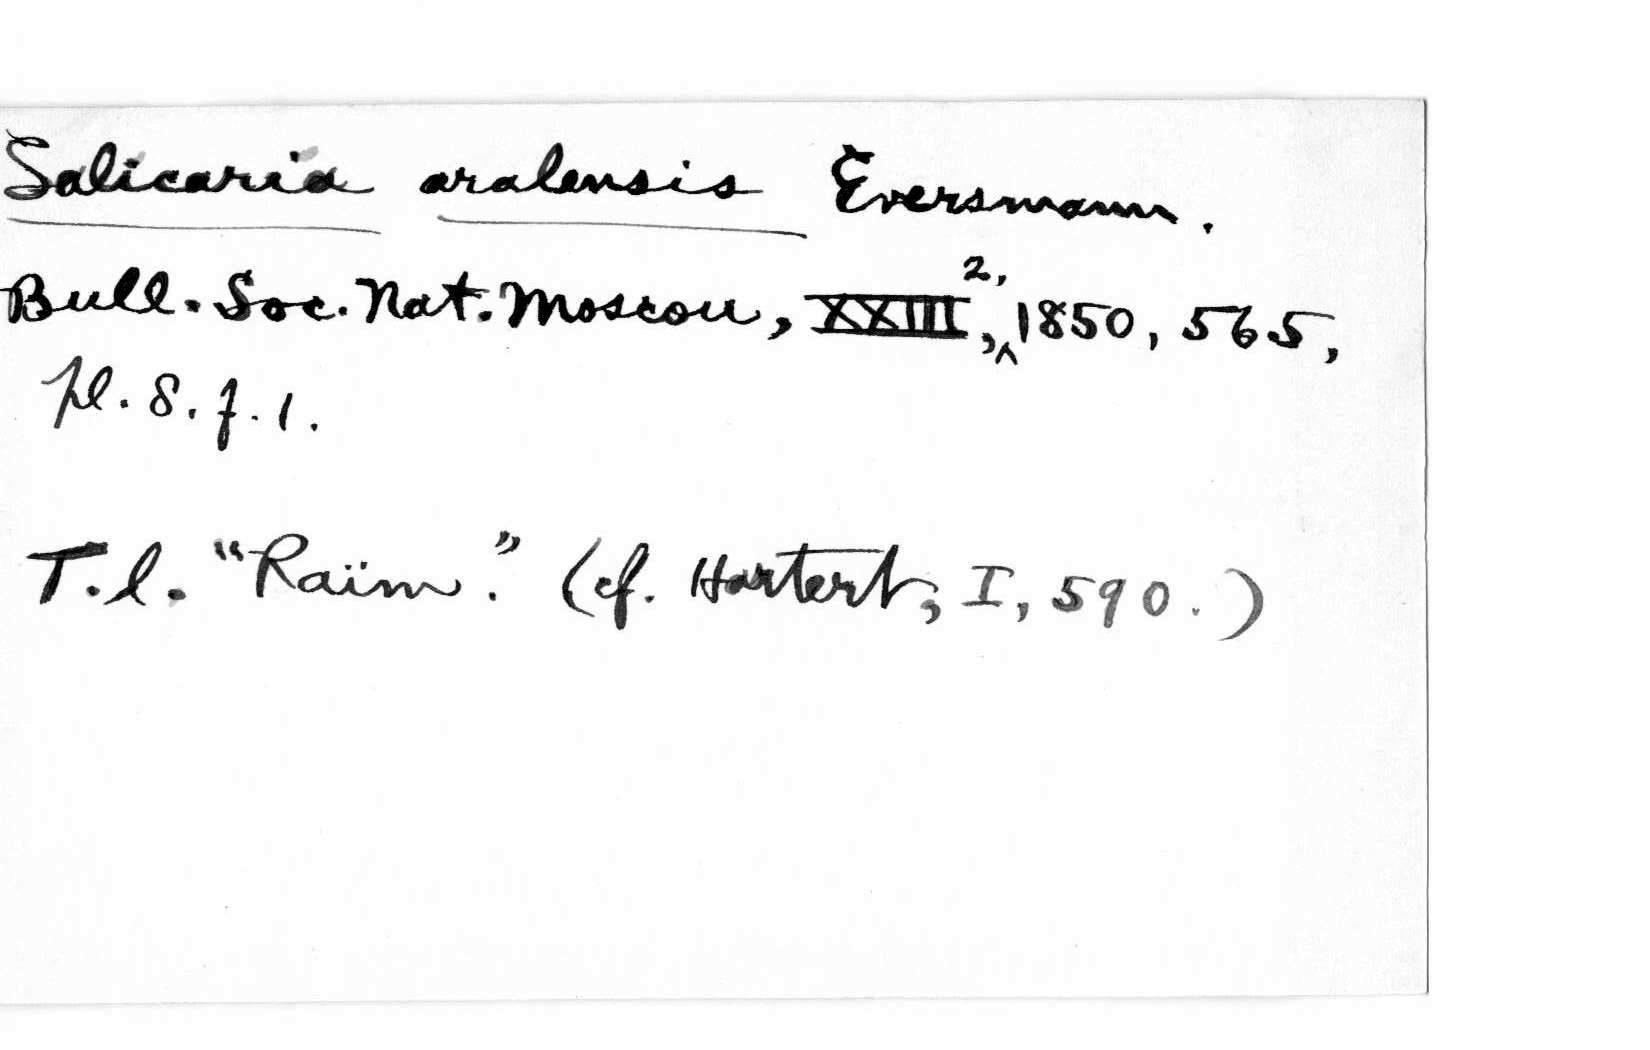 Salicaria aralensis Eversmann.
Bull. Soc. Nat. Moscou, XXIII, 2, 1850, 565,
pl. 8. f. 1.
T.l. "Raïm." (cf. Hartert, I, 590.)